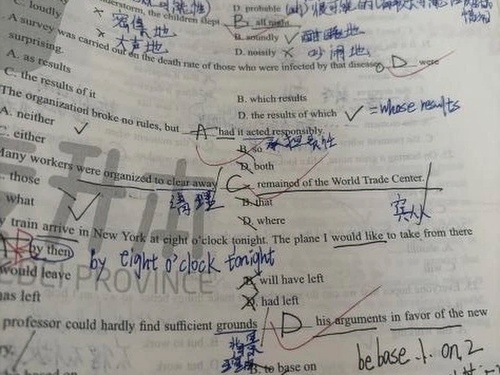 C. loudly
D. probable
understorm, the children slept B all night.
容易地
B. soundly ✓ 酣睡地
大声地
D. noisily × 吵闹地
A survey was carried out on the death rate of those who were infected by that disease, D were
surprising.
A. as results
B. which results
C. the results of it
D. the results of which ✓ =whose results
The organization broke no rules, but A had it acted responsibly.
A. neither ✓
B. so 承担责任
C. either
D. both
Many workers were organized to clear away C remained of the World Trade Center.
清理
those
B. that
what ✓
D. where
train arrive in New York at eight o'clock tonight. The plane I would like to take from there
by then by eight o'clock tonight
would leave
B. will have left
has left
D. had left
EDEI PROVINCE
professor could hardly find sufficient grounds D his arguments in favor of the new
B. to base on
be base
on, 2